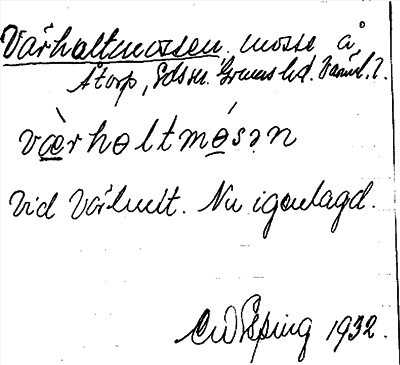 Vårhaltmossen. mosse å
Åtorp, Edssn. Grums hd. Värml.
væ̀rholtmósən
Vid Vårhult. Nu igenlagd.
CW Epping 1932.